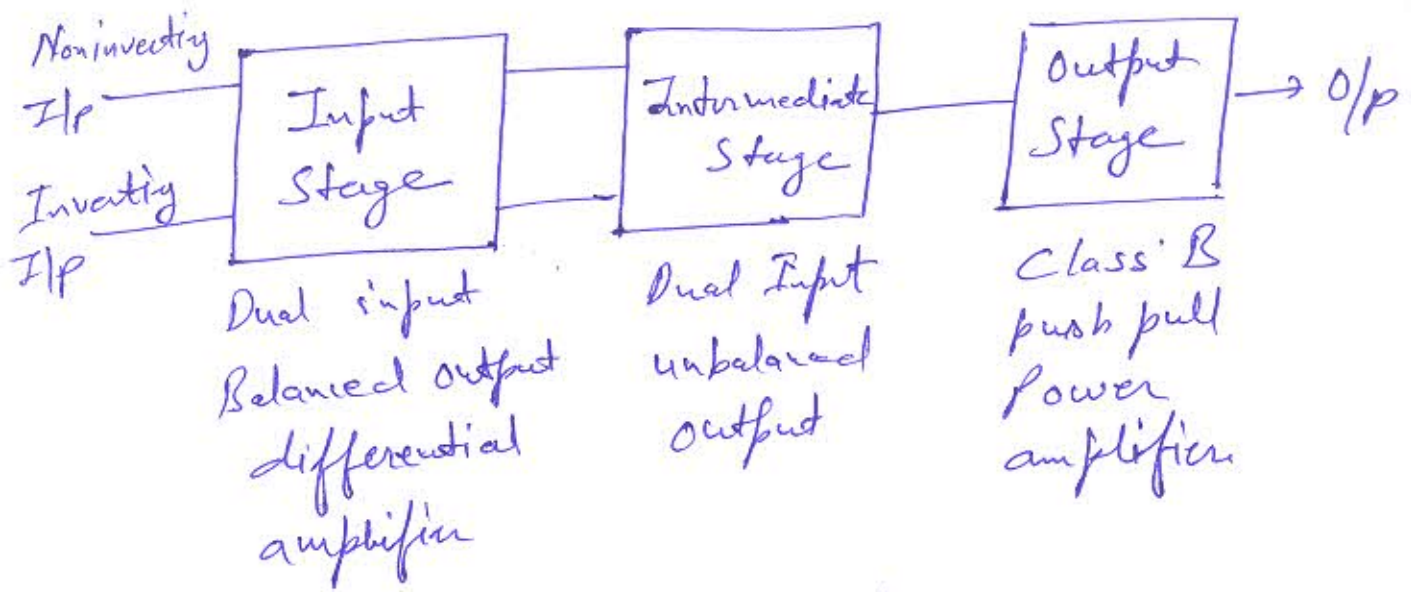 Noninverting
I/p
Inverting
I/p
Input
Stage
Dual input
Balanced output
differential
amplifier
Intermediate
Stage
Dual Input
unbalanced
output
Output
Stage
Class B
push pull
Power
amplifier
O/p